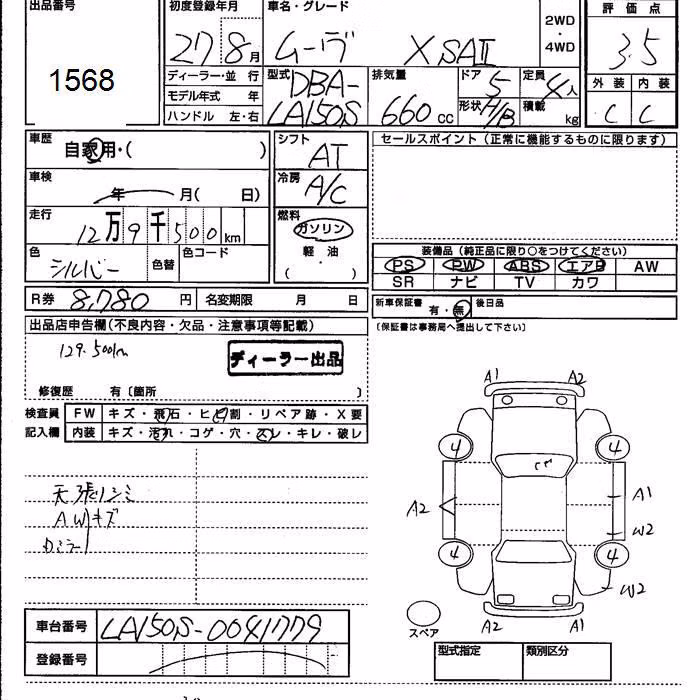 出品番号
1568
初度登録年月
27 8月
車名・グレード
ムーヴ XSAⅡ
2WD
・
4WD
評価点
3.5
外装 内装
C C
ディーラー・並行
モデル年式 年
ハンドル 左・右
型式
DBA-
LA150S
排気量
660cc
ドア
5
定員
4人
形状
H/B
積載
kg
車歴
自家用・( )
車検
年 月( 日)
走行
12万9千500km
色
シルバー
色替
色コード
シフト
AT
冷房
A/C
燃料
ガソリン
軽・油
( ・ )
セールスポイント(正常に機能するものに限ります)
装備品(純正品に限り○をつけてください)
PS PW ABS エアB AW
SR ナビ TV カワ
R券 8,780円 名変期限 月 日
新車保証書 有・無 後日品
〔保証書は事務局へ提出して下さい〕
出品店申告欄(不良内容・欠品・注意事項等記載)
129.500km
ディーラー出品
修復歴 有〔箇所 〕
検査員
記入欄
FW キズ・飛石・ヒビ割・リペア跡・X要
内装 キズ・汚れ・コゲ・穴・スレ・キレ・破レ
天張りシミ
AWキズ
Dミラー
A1 A2
4 4
A2 A1
W2
4 4
W2
A2 A1
スペア
車台番号 LA150S-0041779
登録番号
型式指定 類別区分